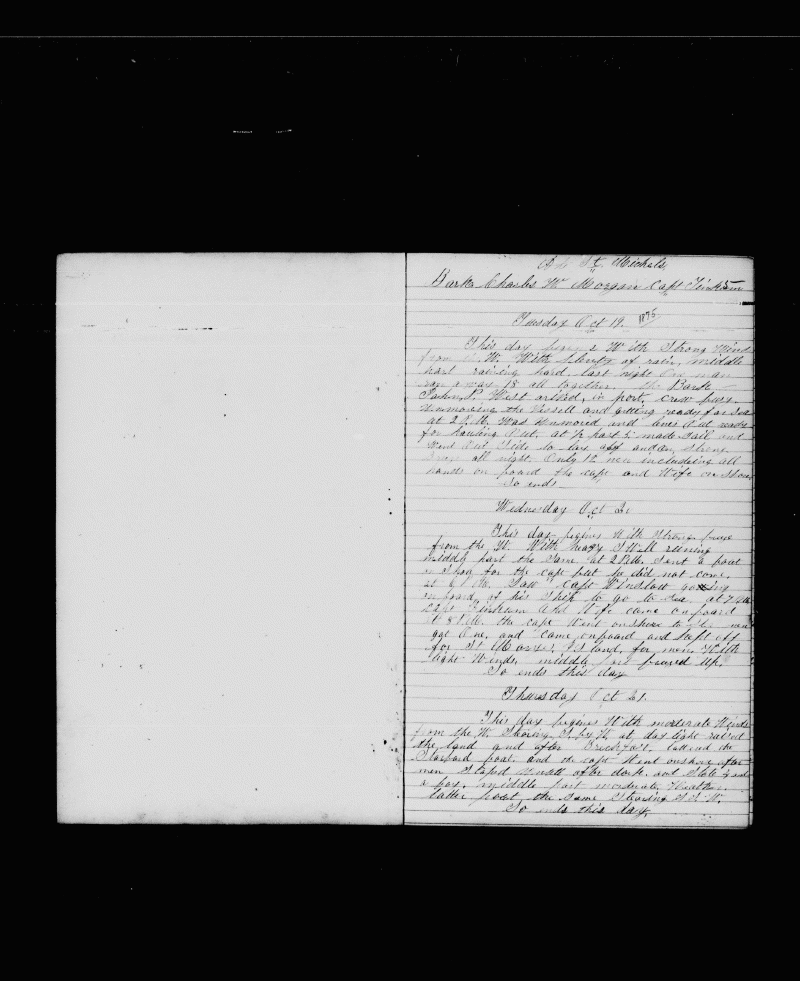 St. Michels
Bark Charles W Morgan Capt Tinkum
Tuesday Oct 19. 1875
This day begins With Strong Winds
from W. With plenty of rain, middle
part raining hard. last night One man
ran away 18 all together. the Bark
P. West arived, in port. crew
Unmooring the Vessell and getting ready for Sea
at 2 P.M. Was Unmoored and lines Out ready
for hauling Out. at ½ past 5 made Sail and
Went Out Side to lay off and on Strong
all night. Only 12 men including all
hands on board the capt and Wife on Shore
So ends
Wednesday Oct 20
This day begins With Strong
from the W. With heavy Swell running
middle part the Same at 2 P.M. Sent a boat
on Shore for the capt but he did not come.
at M. Saw Capt Winslow going
on board of his Ship to go to Sea. at 7 AM
Capt Tinkum And Wife came on board
at 8 A.M. the capt Went on Shore to
got One, and came on board and
for St Island, for men With
light Winds, middle part
So ends this day
Thursday Oct 21.
This day begins With moderate Winds
from the W. Stearing S. by W. at, day light raised
the land and after Breckfast. the
Starbord boat. and the capt Went on Shore after
men Untill after dark. and
a boy. middle part moderate Weather.
latter part, the Same Stearing S.W.
So ends this day.